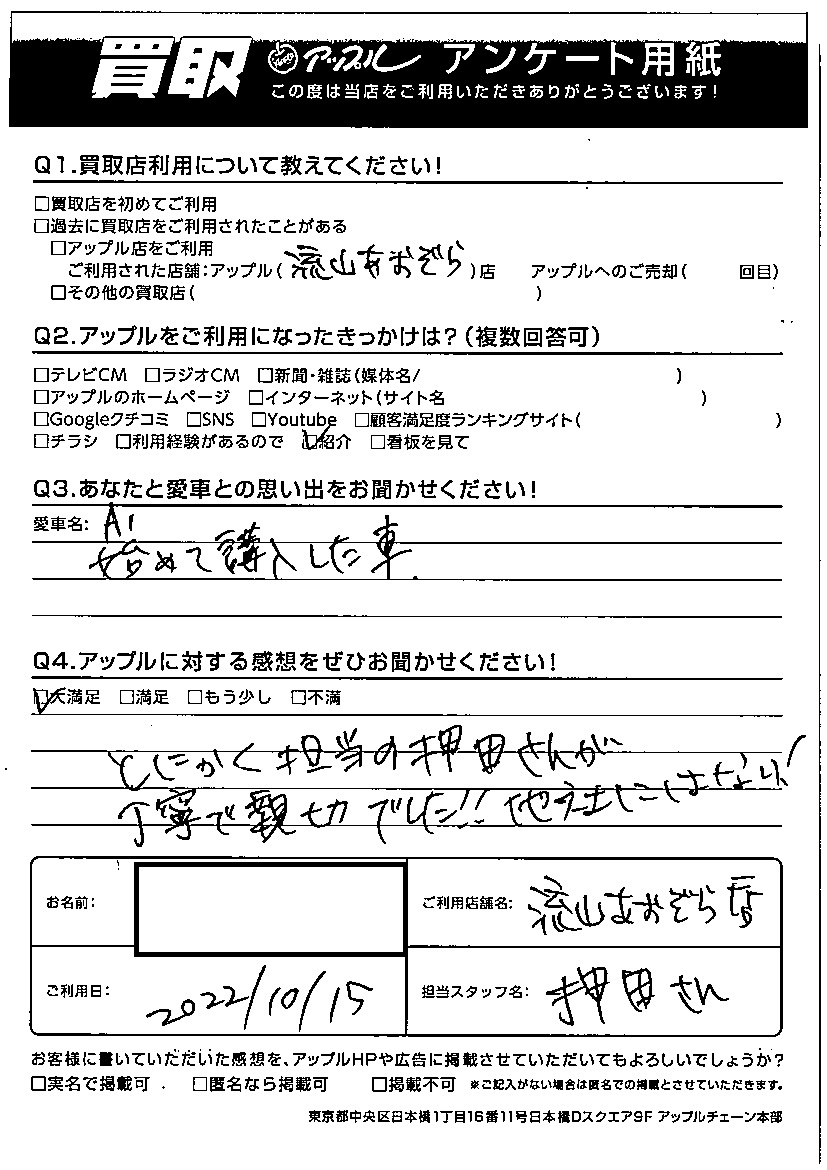 買取 アップル アンケート用紙
この度は当店をご利用いただきありがとうございます!
Q1.買取店利用について教えてください!
□買取店を初めてご利用
□過去に買取店をご利用されたことがある
□アップル店をご利用
ご利用された店舗:アップル(流山あおぞら)店 アップルへのご売却( 回目)
□その他の買取店( )
Q2.アップルをご利用になったきっかけは?(複数回答可)
□テレビCM □ラジオCM □新聞・雑誌(媒体名/ )
□アップルのホームページ □インターネット(サイト名 )
□Googleクチコミ □SNS □Youtube □顧客満足度ランキングサイト( )
□チラシ □利用経験があるので ☑紹介 □看板を見て
Q3.あなたと愛車との思い出をお聞かせください!
愛車名: A1
始めて購入した車.
Q4.アップルに対する感想をぜひお聞かせください!
☑大満足 □満足 □もう少し □不満
とにかく担当の押田さんが
丁寧で親切でした!! 他社にはない!
お名前: ご利用店舗名: 流山あおぞら店
ご利用日: 2022/10/15 担当スタッフ名: 押田さん
お客様に書いていただいた感想を、アップルHPや広告に掲載させていただいてもよろしいでしょうか?
□実名で掲載可 □匿名なら掲載可 □掲載不可 ※ご記入がない場合は匿名での掲載とさせていただきます。
東京都中央区日本橋1丁目16番11号日本橋Dスクエア9F アップルチェーン本部